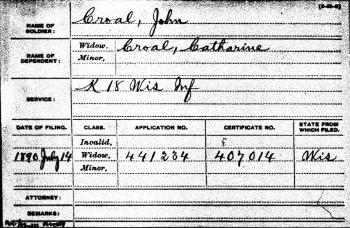 NAME OF SOLDIER: Croal, John
NAME OF DEPENDENT: Widow, Croal, Catharine
Minor,
SERVICE: K 18 Wis Inf
DATE OF FILING. CLASS. APPLICATION NO. CERTIFICATE NO. STATE FROM WHICH FILED.
Invalid,
1890 July 14 Widow, 441234 407014 Wis
Minor,
ATTORNEY:
REMARKS: